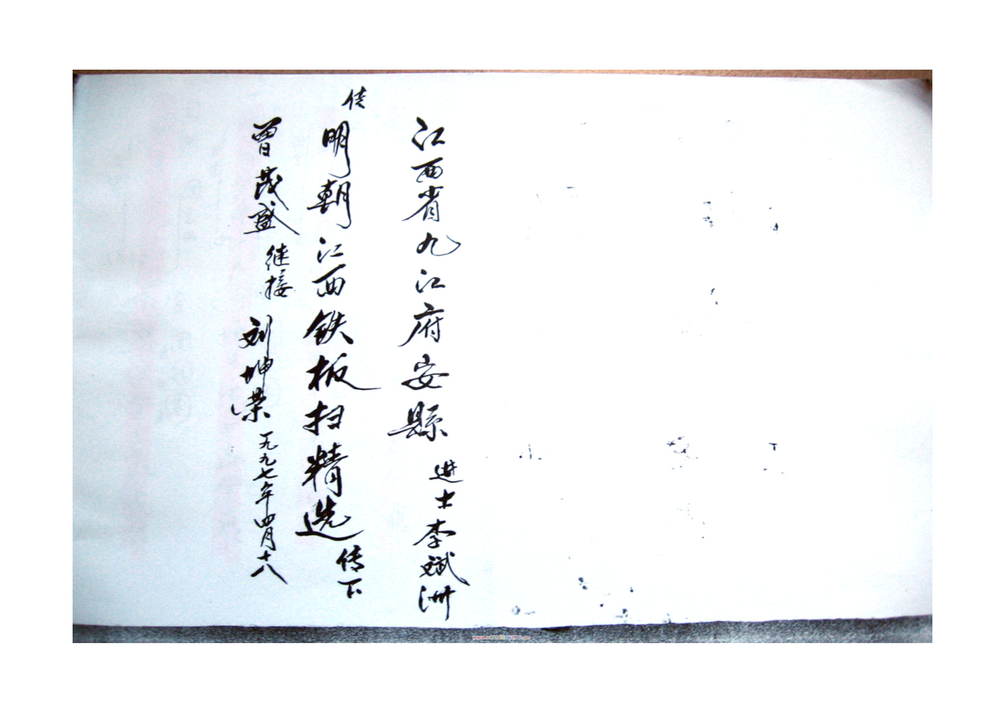 江西省九江府安縣 进士李斌洲
传明朝江西铁板扫精选传下
曾茂盛继接刘坤荣一九九七年四月十八